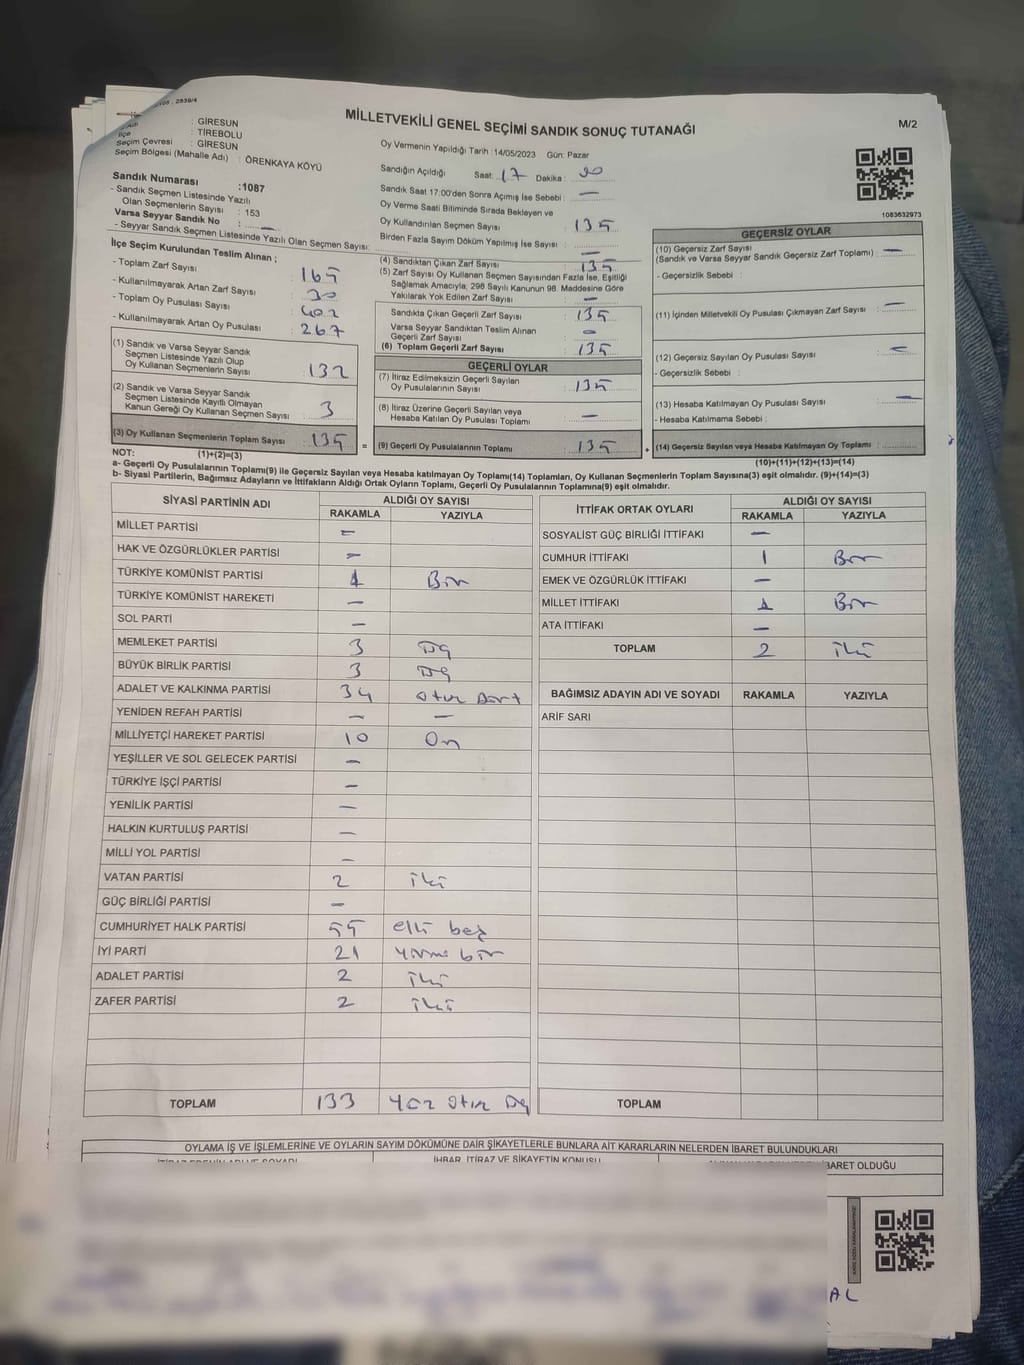 MİLLETVEKİLİ GENEL SEÇİMİ SANDIK SONUÇ TUTANAĞI
M/2
: GİRESUN
İlçe : TİREBOLU
Seçim Çevresi : GİRESUN
Seçim Bölgesi (Mahalle Adı) : ÖRENKAYA KÖYÜ
Sandık Numarası :1087
- Sandık Seçmen Listesinde Yazılı
Olan Seçmenlerin Sayısı : 153
Varsa Seyyar Sandık No : —
- Seyyar Sandık Seçmen Listesinde Yazılı Olan Seçmen Sayısı:
İlçe Seçim Kurulundan Teslim Alınan ;
- Toplam Zarf Sayısı : 165
- Kullanılmayarak Artan Zarf Sayısı : 30
- Toplam Oy Pusulası Sayısı : 402
- Kullanılmayarak Artan Oy Pusulası : 267
(1) Sandık ve Varsa Seyyar Sandık
Seçmen Listesinde Yazılı Olup
Oy Kullanan Seçmenlerin Sayısı : 132
(2) Sandık ve Varsa Seyyar Sandık
Seçmen Listesinde Kayıtlı Olmayan
Kanun Gereği Oy Kullanan Seçmen Sayısı : 3
(3) Oy Kullanan Seçmenlerin Toplam Sayısı : 135
Oy Vermenin Yapıldığı Tarih :14/05/2023 Gün: Pazar
Sandığın Açıldığı Saat: 17 Dakika :
Sandık Saat 17:00'den Sonra Açılmış İse Sebebi : —
Oy Verme Saati Bitiminde Sırada Bekleyen ve
Oy Kullandırılan Seçmen Sayısı : 135
Birden Fazla Sayım Döküm Yapılmış İse Sayısı : —
(4) Sandıktan Çıkan Zarf Sayısı : 135
(5) Zarf Sayısı Oy Kullanan Seçmen Sayısından Fazla İse, Eşitliği
Sağlamak Amacıyla, 298 Sayılı Kanunun 98. Maddesine Göre
Yakılarak Yok Edilen Zarf Sayısı : —
Sandıkta Çıkan Geçerli Zarf Sayısı : 135
Varsa Seyyar Sandıktan Teslim Alınan
Geçerli Zarf Sayısı :
(6) Toplam Geçerli Zarf Sayısı : 135
GEÇERLİ OYLAR
(7) İtiraz Edilmeksizin Geçerli Sayılan
Oy Pusulalarının Sayısı : 135
(8) İtiraz Üzerine Geçerli Sayılan veya
Hesaba Katılan Oy Pusulası Toplamı : —
= (9) Geçerli Oy Pusulalarının Toplamı : 135
1083632973
GEÇERSİZ OYLAR
(10) Geçersiz Zarf Sayısı
(Sandık ve Varsa Seyyar Sandık Geçersiz Zarf Toplamı) : —
- Geçersizlik Sebebi :
(11) İçinden Milletvekili Oy Pusulası Çıkmayan Zarf Sayısı : —
(12) Geçersiz Sayılan Oy Pusulası Sayısı : —
- Geçersizlik Sebebi :
(13) Hesaba Katılmayan Oy Pusulası Sayısı : —
- Hesaba Katılmama Sebebi :
+ (14) Geçersiz Sayılan veya Hesaba Katılmayan Oy Toplamı :
NOT: (1)+(2)=(3)
(10)+(11)+(12)+(13)=(14)
a- Geçerli Oy Pusulalarının Toplamı(9) ile Geçersiz Sayılan veya Hesaba katılmayan Oy Toplamı(14) Toplamları, Oy Kullanan Seçmenlerin Toplam Sayısına(3) eşit olmalıdır. (9)+(14)=(3)
b- Siyasi Partilerin, Bağımsız Adayların ve İttifakların Aldığı Ortak Oyların Toplamı, Geçerli Oy Pusulalarının Toplamına(9) eşit olmalıdır.
SİYASİ PARTİNİN ADI ALDIĞI OY SAYISI
RAKAMLA YAZIYLA
MİLLET PARTİSİ —
HAK VE ÖZGÜRLÜKLER PARTİSİ —
TÜRKİYE KOMÜNİST PARTİSİ 1 Bir
TÜRKİYE KOMÜNİST HAREKETİ —
SOL PARTİ —
MEMLEKET PARTİSİ 3 üç
BÜYÜK BİRLİK PARTİSİ 3 üç
ADALET VE KALKINMA PARTİSİ 34 otuz dört
YENİDEN REFAH PARTİSİ — —
MİLLİYETÇİ HAREKET PARTİSİ 10 On
YEŞİLLER VE SOL GELECEK PARTİSİ —
TÜRKİYE İŞÇİ PARTİSİ —
YENİLİK PARTİSİ —
HALKIN KURTULUŞ PARTİSİ —
MİLLİ YOL PARTİSİ —
VATAN PARTİSİ 2 iki
GÜÇ BİRLİĞİ PARTİSİ —
CUMHURİYET HALK PARTİSİ 55 elli beş
İYİ PARTİ 21 yirmi bir
ADALET PARTİSİ 2 iki
ZAFER PARTİSİ 2 iki
TOPLAM 133 yüz otuz üç
İTTİFAK ORTAK OYLARI ALDIĞI OY SAYISI
RAKAMLA YAZIYLA
SOSYALİST GÜÇ BİRLİĞİ İTTİFAKI —
CUMHUR İTTİFAKI 1 Bir
EMEK VE ÖZGÜRLÜK İTTİFAKI —
MİLLET İTTİFAKI 1 Bir
ATA İTTİFAKI —
TOPLAM 2 iki
BAĞIMSIZ ADAYIN ADI VE SOYADI RAKAMLA YAZIYLA
ARİF SARI
TOPLAM
OYLAMA İŞ VE İŞLEMLERİNE VE OYLARIN SAYIM DÖKÜMÜNE DAİR ŞİKAYETLERLE BUNLARA AİT KARARLARIN NELERDEN İBARET BULUNDUKLARI
İHBAR, İTİRAZ VE ŞİKAYETİN KONUSU
İBARET OLDUĞU
AL